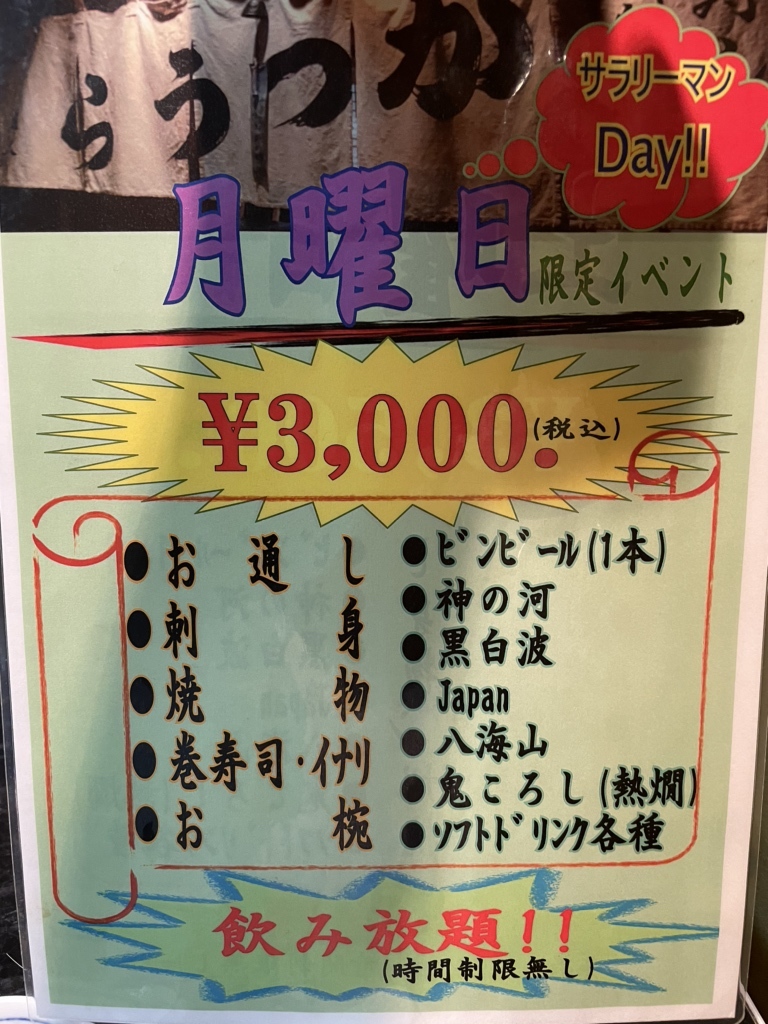 らうつか
サラリーマン
Day!!
月曜日
限定イベント
¥3,000.(税込)
●お通し
●刺身
●焼物
●巻寿司・イナリ
●お椀
●ビンビール(1本)
●神の河
●黒白波
●Japan
●八海山
●鬼ころし(熱燗)
●ソフトドリンク各種
飲み放題!!
(時間制限無し)